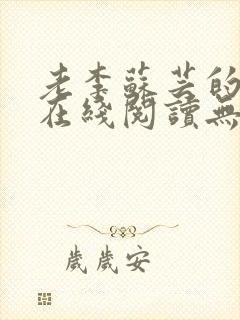 老李蘇芸的
在綫閱讀無
歲歲安